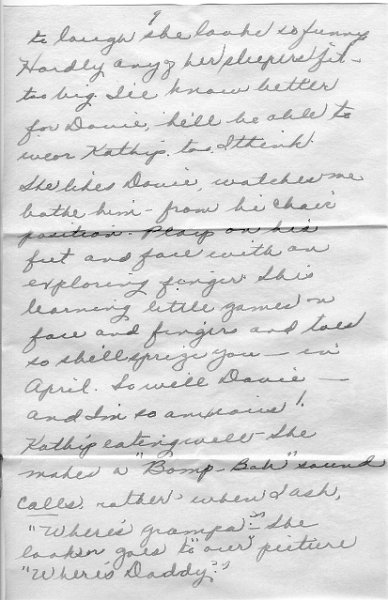 9
to laugh she looks so funny
Hardly any of her sleepers fit -
too big. I'll know better
for Davie, he'll be able to
wear Kathy's too I think.
She likes Davie, watches me
bathe him - from hi chair
position. Plays on his
feet and face with an
exploring finger. She's
learning little games on
face and fingers and toes
so she'll sprize you - in
April. So will Davie -
and I'm so anxious!
Kathy's eating well. She
makes a "Bomp-Bah" sound
calls rather when I ask,
"Where's grampa?" - She
looks or goes to "our" picture
"Where's Daddy?"